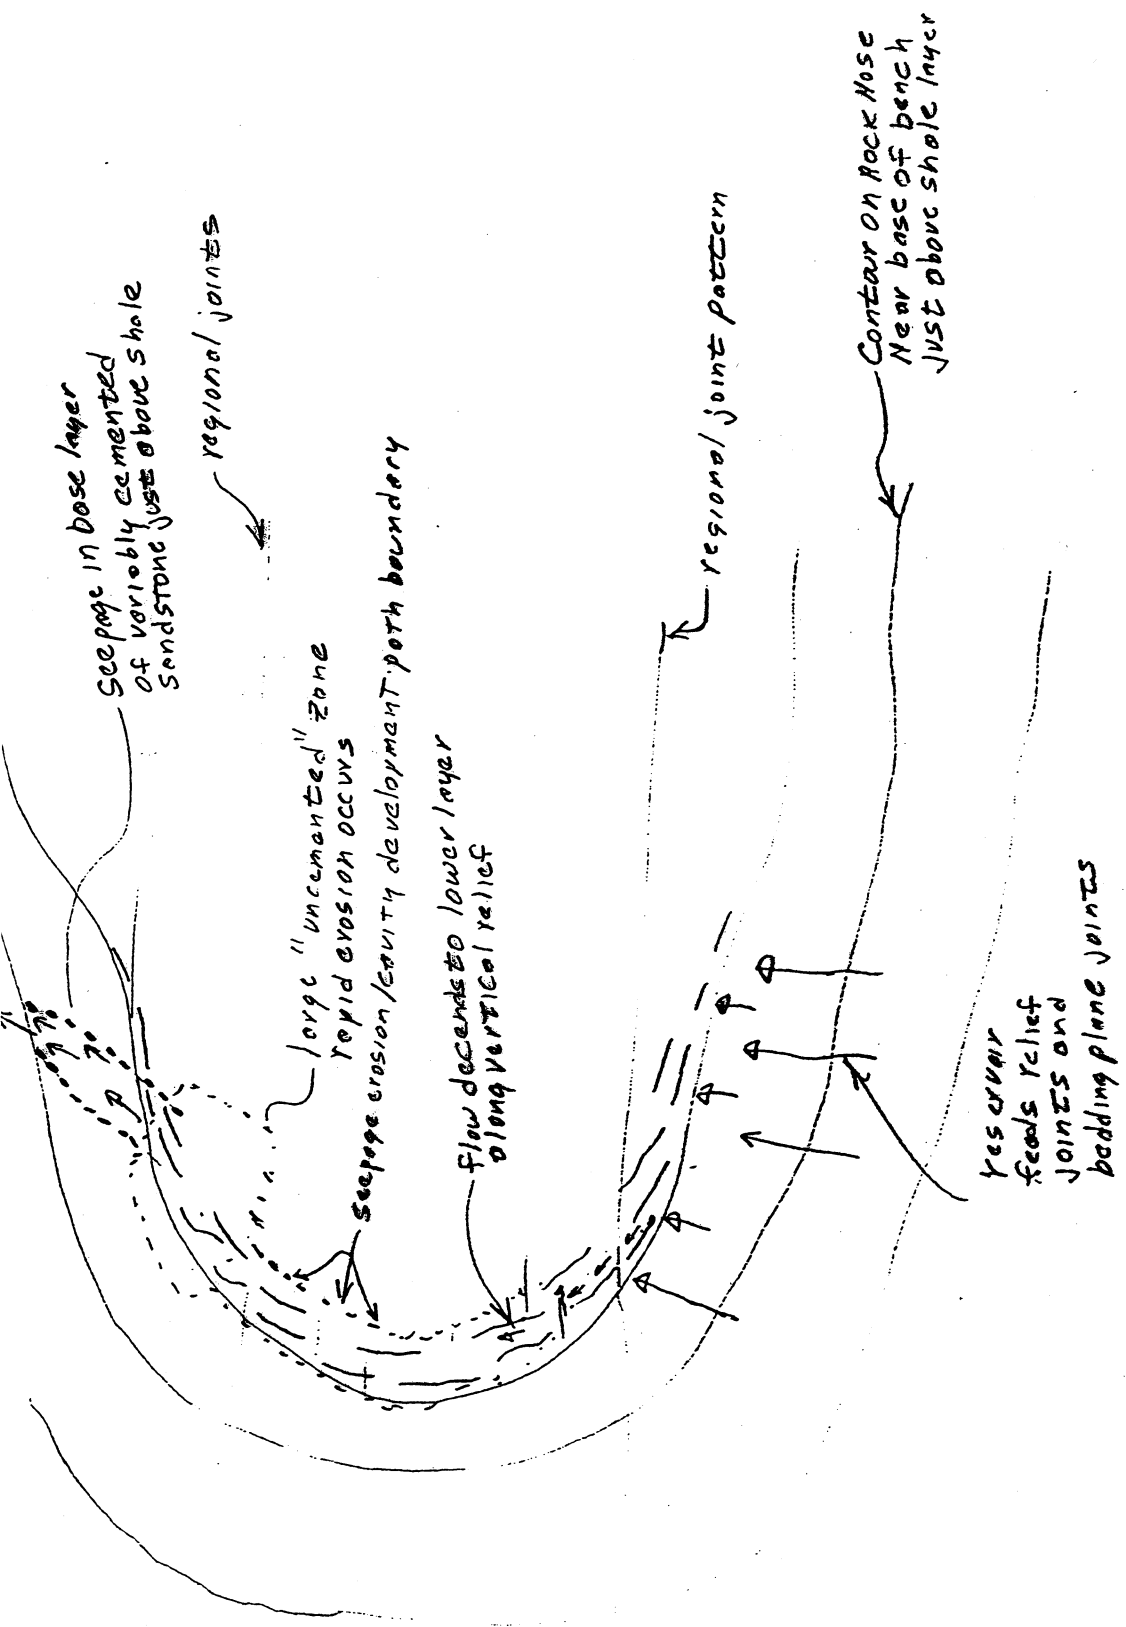 seepage in base layer
of variably cemented
sandstone just above shale
regional joints
large "uncemented" zone
rapid erosion occurs
seepage erosion/cavity development path boundary
flow decends to lower layer
along vertical relief
regional joint pattern
Contour on Rock Nose
Near base of bench
just above shale layer
reservoir
feeds relief
joints and
bedding plane joints